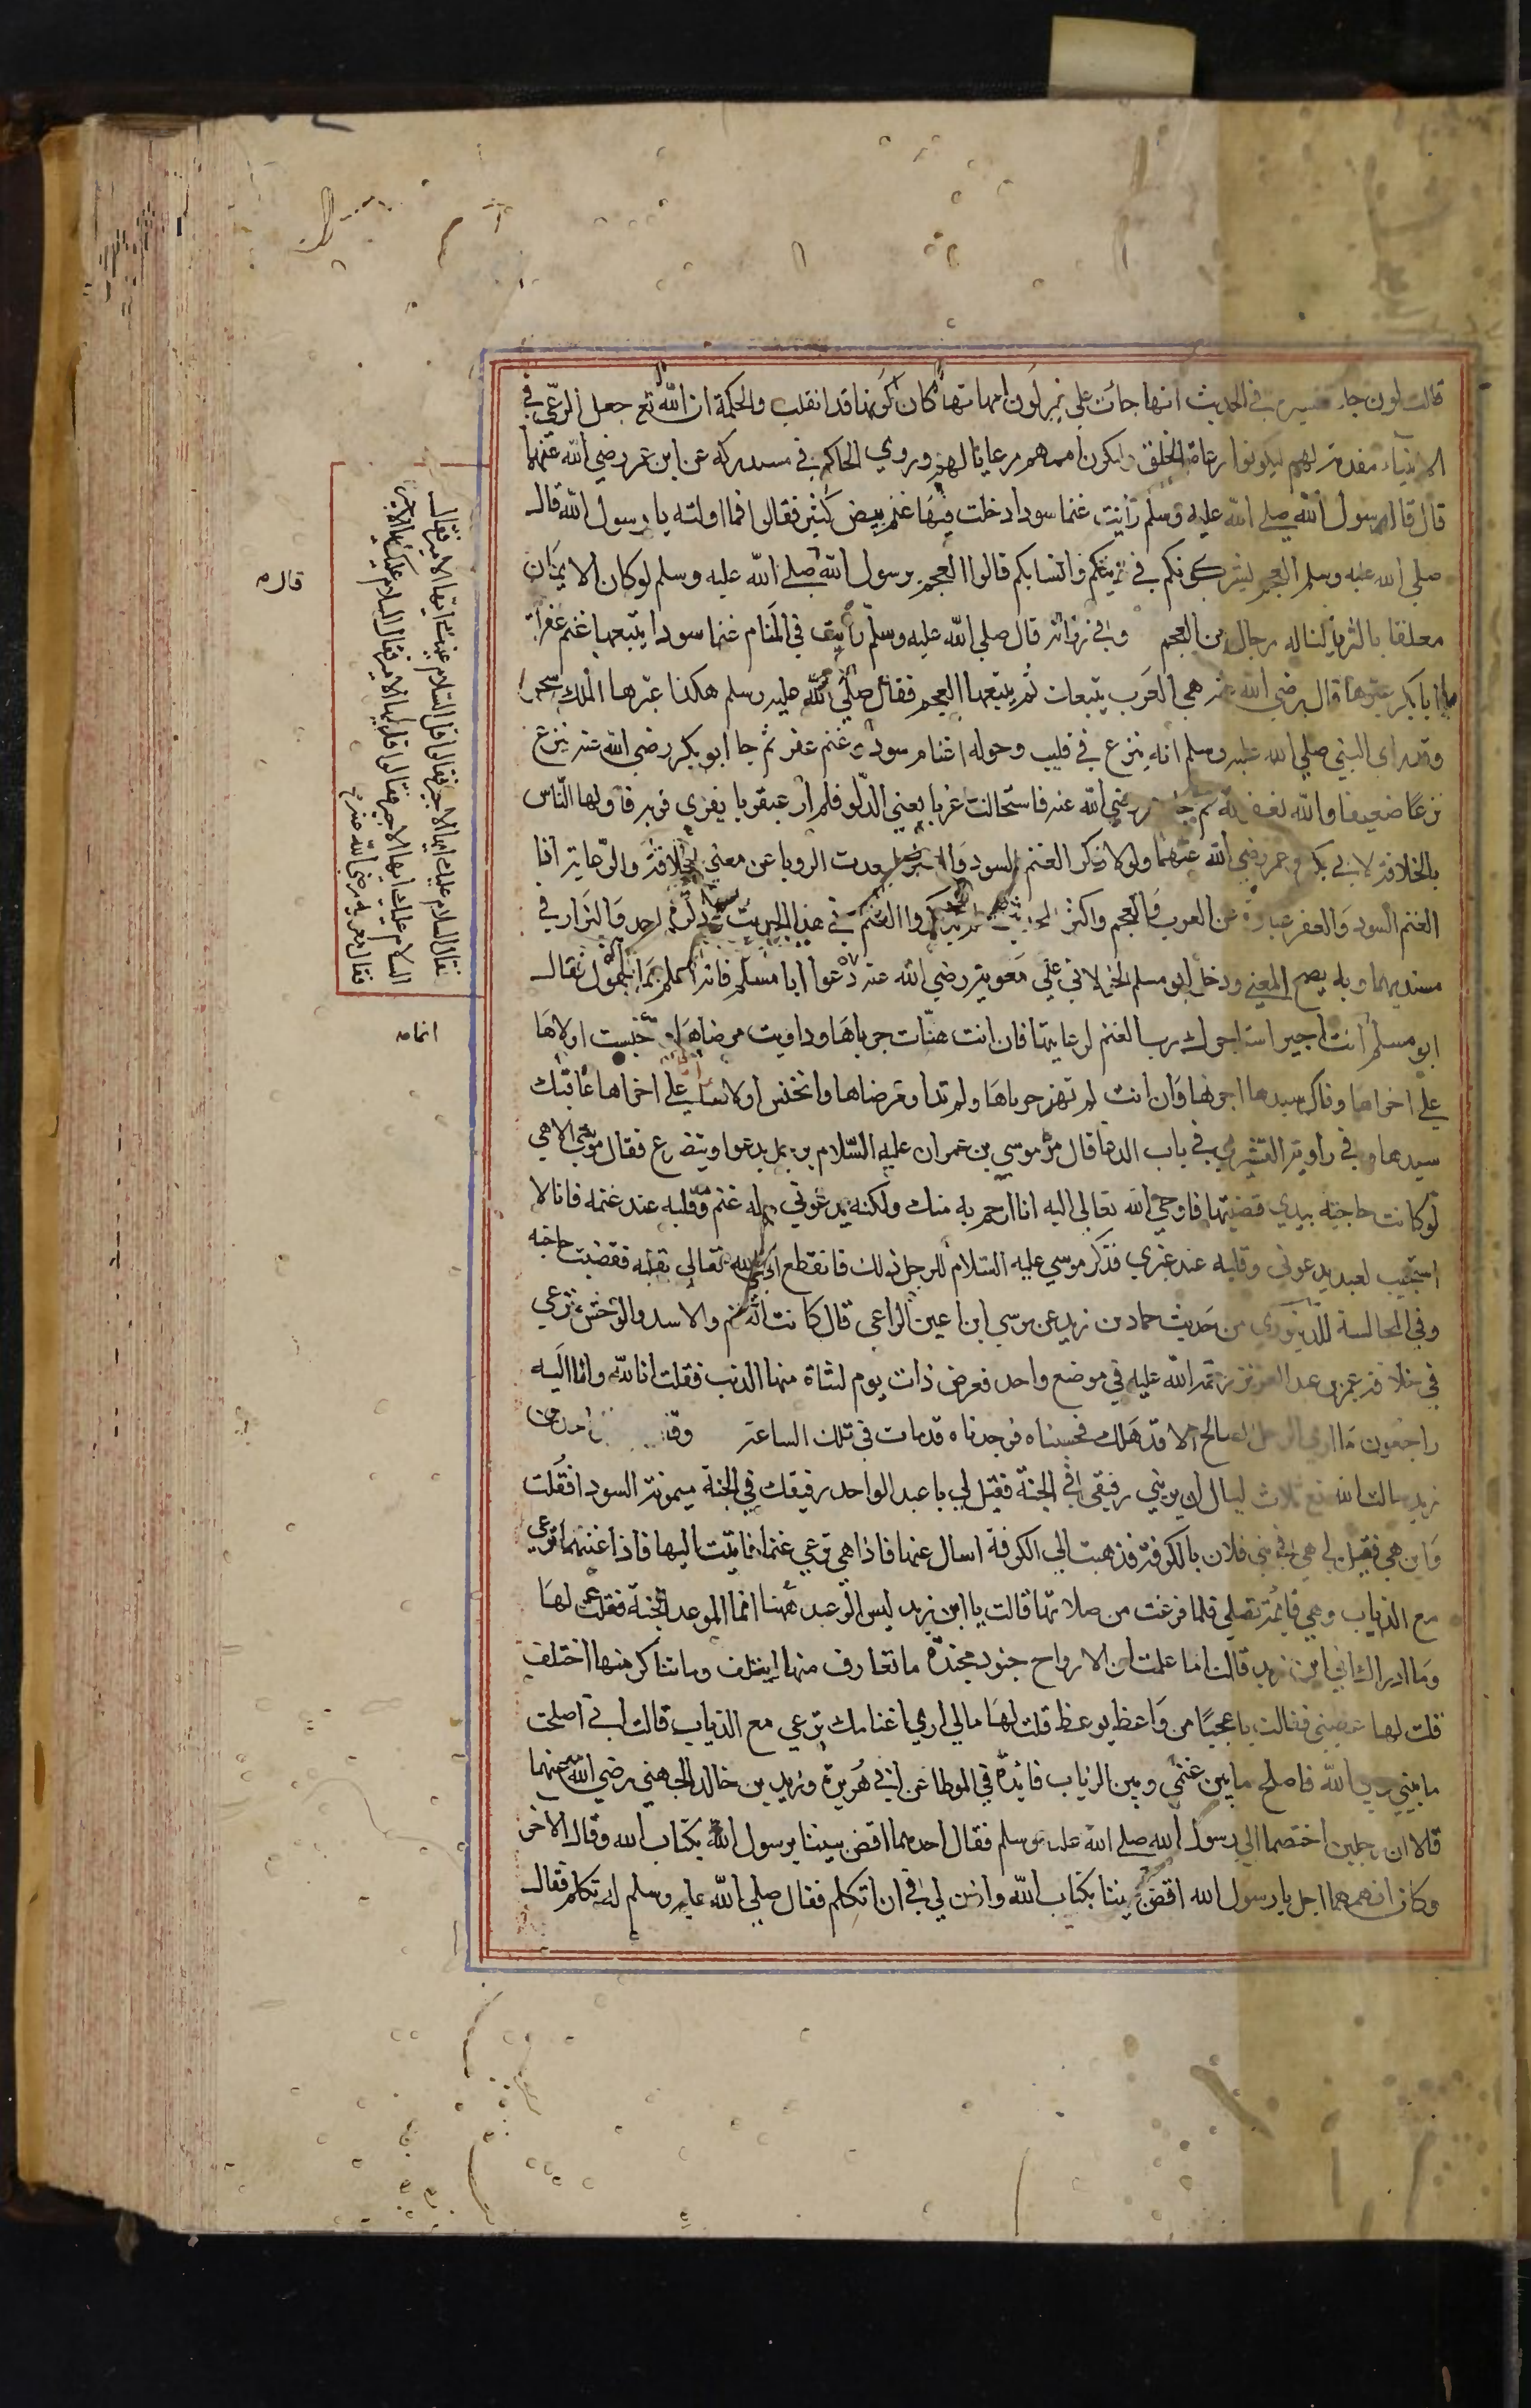 قالت لون جاء تفسيره في الحديث انها جائت على غير لون امهاتها كان لونها قد انقلب والحكمة ان الله تع جعل الرعي في
الانبياء مقدمة لهم ليكونوا رعاة الخلق وليكون اممهم رعايا لهم وروي الحاكم في مستدركه عن ابن عمر رضي الله عنهما
قال قال رسول الله صلي الله عليه وسلم رأيت غنما سودا دخلت فيها غنم بيض كثير فقالوا فما اولته يا رسول الله قال
صلي الله عليه وسلم العجم يشركونكم في دينكم وانسابكم قالوا العجم يرسول الله صلي الله عليه وسلم لو كان الايمان
معلقا بالثريا لناله رجال من العجم وفي رواية قال صلي الله عليه وسلم رأيت في المنام غنما سودا يتبعها غنم عفراء
يا ابا بكر عبرها قال رضي الله عنه هي العرب يتبعات ثم يتبعها العجم فقال صلي الله عليه وسلم هكذا عبرها الملك سحرا
وقد راى النبي صلي الله عليه وسلم انه ينزع في قليب وحوله اغنام سود وغنم عفر ثم جا ابو بكر رضي الله عنه ينزع
نزعا ضعيفا والله يغفر له ثم جاء عمر رضي الله عنه فاستحالت غربا يعني الدلو فلم ار عبقريا يفري فريه فاولها الناس
بالخلافة لابي بكر وعمر رضي الله عنهما ولولا ذكر الغنم السود والعفر لبعدت الرويا عن معني الخلافة والرعاية اذا
الغنم السود والعفر عبارة عن العرب والعجم واكثر المحدثين لم يذكروا الغنم في هذا الحديث ذكره احمد والبزار في
مسنديهما وبه يصح المعني ودخل ابو مسلم الخولاني علي معوية رضي الله عنه دعوا ابا مسلم فانه اعلم بما يقول فقال
ابو مسلم انت اجير استاجرك رب الغنم لرعايتها فان انت هنات جرباها وداويت مرضاها وحبست اولاها
علي اخراها وفاك سيدها اجرها وان انت لم تهنا جرباها ولم تداو مرضاها ولم تحبس اولاها علي اخراها عاقبك
سيدها وفي رسالة القشيري في باب الدعا قال مر موسي بن عمران عليه السلام برجل يدعوا ويتضرع فقال موسي الاهي
لو كانت حاجته بيدي قضيتها فاوحي الله تعالي اليه انا ارحم به منك ولكنه يدعوني وله غنم وقلبه عند غنمه فانا لا
استجيب لعبد يدعوني وقلبه عند غيري فذكر موسي عليه السلام للرجل ذلك فانقطع الي الله تعالي بقلبه فقضيت حاجته
وفي المجالسة للدينوري من حديث حماد بن زيد عن موسي ابن اعين الراعي قال كانت الغنم والاسد والوحش ترعي
في خلافة عمر بن عبد العزيز رحمة الله عليه في موضع واحد فعرض ذات يوم لشاة منها الذئب فقلت انا لله وانا اليه
راجعون ما اري الرجل الصالح الا قد هلك فحسبناه فوجدناه قد مات في تلك الساعة
زيد سالت الله تع ثلاث ليال ان يريني رفيقي في الجنة فقيل لي يا عبد الواحد رفيقك في الجنة ميمونة السودا فقلت
واين هي فقيل لي هي في بني فلان بالكوفة فذهبت الي الكوفة اسال عنها فاذا هي ترعي غنما فاتيت اليها فاذا غنمها ترعي
مع الذياب وهي قائمة تصلي فلما فرغت من صلاتها قالت يا ابن زيد ليس الوعد ههنا انما الموعد الجنة فقلت لها
وما ادراك اني ابن زيد قالت اما علمت ان الارواح جنود مجندة ما تعارف منها ايتلف وما تناكر منها اختلف
قلت لها عظيني فقالت يا عجبا من واعظ يوعظ قلت لها مالي اري اغنامك ترعي مع الذياب قالت اني اصلحت
ما بيني وبين الله فاصلح ما بين غنمي وبين الذياب فائدة في الموطا عن ابي هريرة وزيد بن خالد الجهني رضي الله عنهما
قالا ان رجلين اختصما الي رسول الله صلي الله عليه وسلم فقال احدهما اقض بيننا يرسول الله بكتاب الله وقال الاخر
وكان افهمهما اجل يا رسول الله اقض بيننا بكتاب الله واذن لي في ان اتكلم فقال صلي الله عليه وسلم له تكلم فقال
فقال السلام عليك ايها الاجير فقالوا قل السلام عليك ايها الامير فقال
السلام عليك ايها الاجير فقالوا قل ايها الامير فقال السلام عليك ايها الاجير
فقال معوية رضي الله عنه